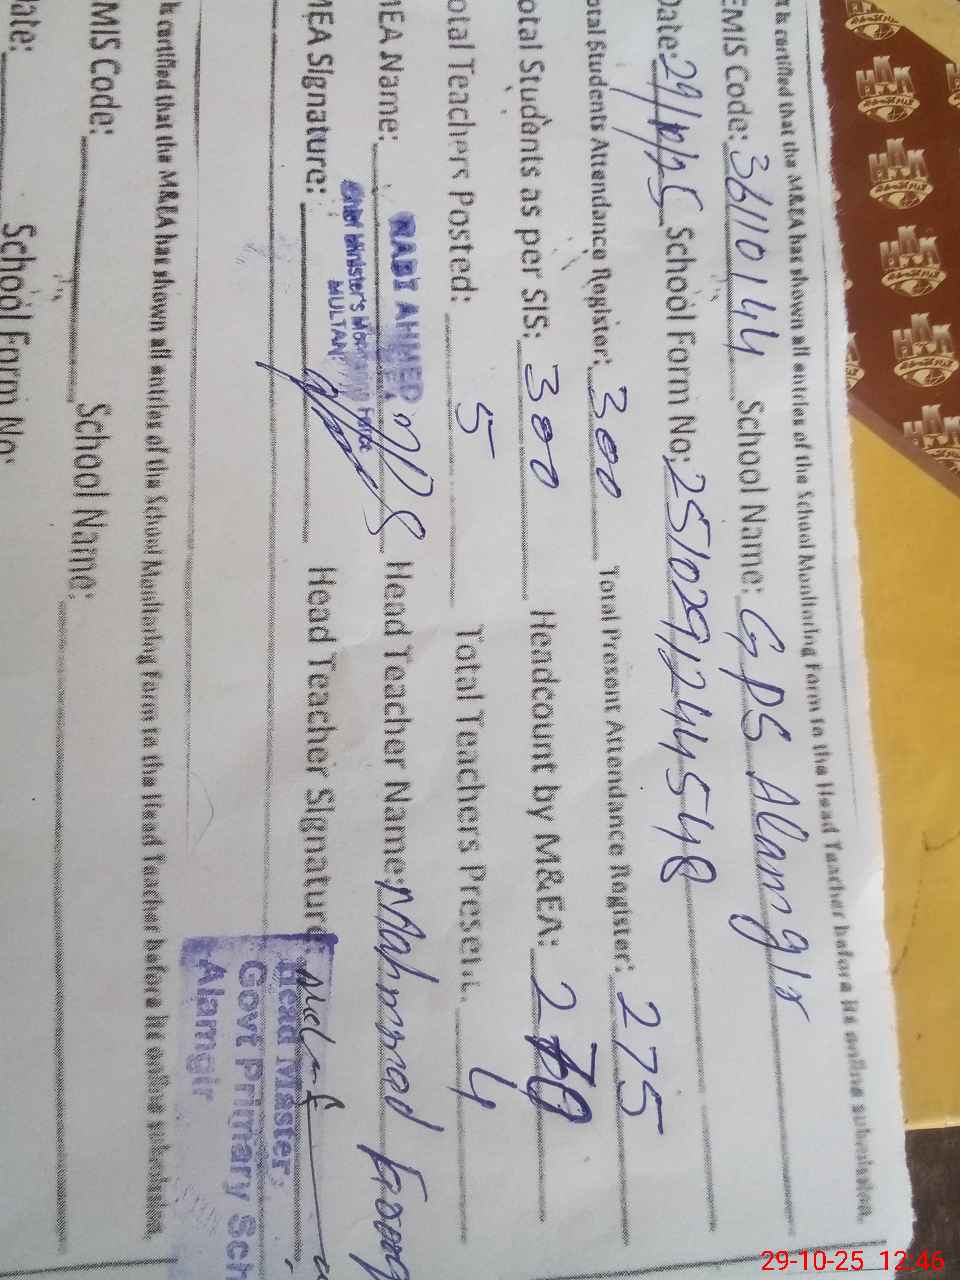 t is certified that the M&EA has shown all entries of the School Monitoring Form to the Head Teacher before its online submission.
EMIS Code: 36110144 School Name: GPS Alamgir
Date: 29/10/25 School Form No: 251029124548
otal Students Attendance Register: 300 Total Present Attendance Register: 275
otal Students as per SIS: 300 Headcount by M&EA: 270
otal Teachers Posted: 5 Total Teachers Present: 4
MEA Name: RABI AHMED Head Teacher Name: Mahmad Farooq
Chief Minister's Monitoring Force
MULTAN
MEA Signature: Head Teacher Signature:
Head Master,
Govt Primary Sch
Alamgir
is certified that the M&EA has shown all entries of the School Monitoring Form to the Head Teacher before its online submission.
MIS Code: School Name:
ate: School Form No:
HKK
29-10-25 12:46